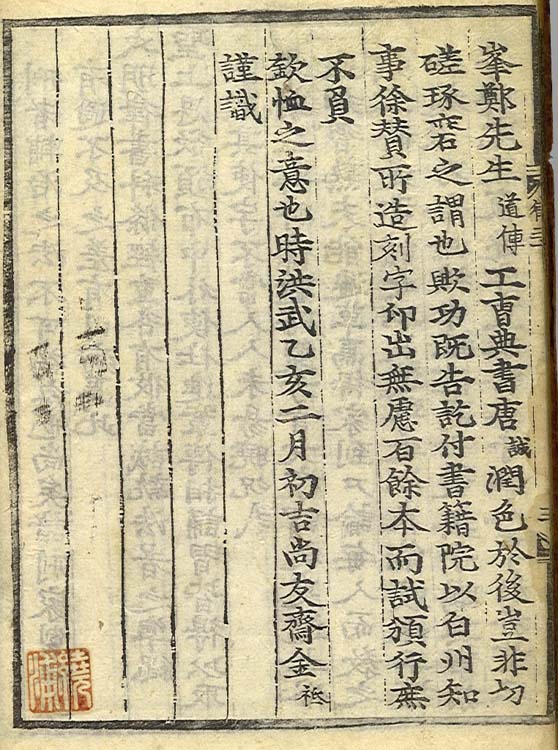 峯鄭先生道傳工曹典書唐誠潤色於後豈非切
磋琢磨之謂也歟功既告訖付書籍院以白州知
事徐賛所造刻字印出無慮百餘本而試頒行庶
不負
欽恤之意也時洪武乙亥二月初吉尚友齋金祗
謹識